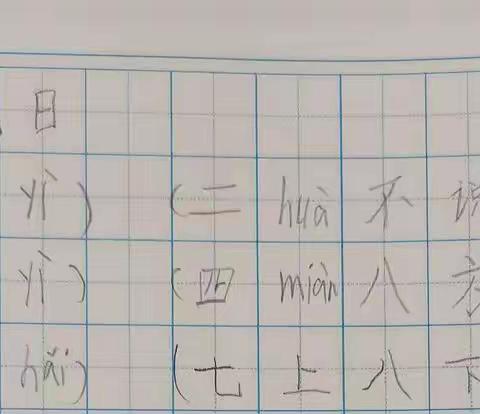 日
yì) (二 huà 不 说
yì) (四 miàn 八 方
hǎi) (七 上 八 下